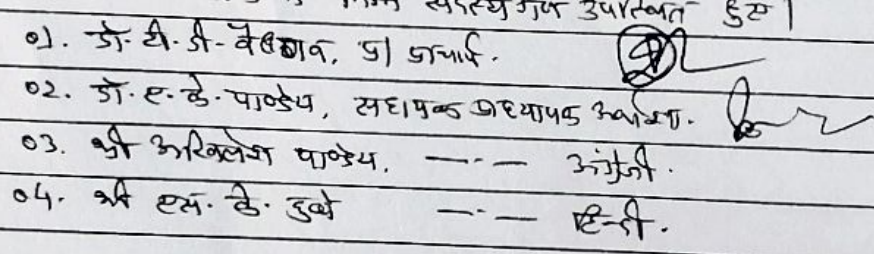 सदस्य गण उपस्थित हुए।
01. डॉ. टी. डी. वैष्णव, प्र। प्राचार्य.
02. डॉ. ए. के. पाण्डेय, सहायक प्राध्यापक अर्थशा.
03. श्री अखिलेश पाण्डेय, —··— अंग्रेजी.
04. श्री एस. के. दुबे —··— हिन्दी.